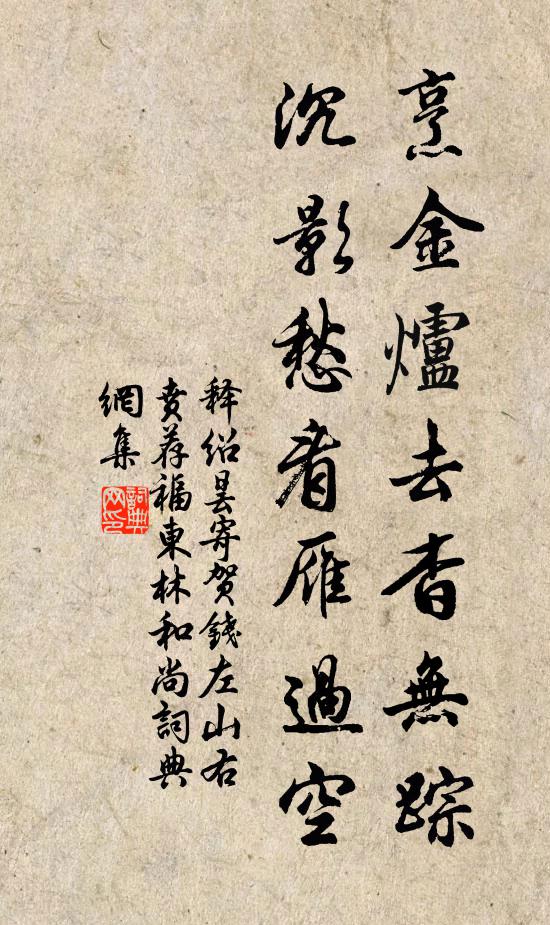 烹金爐去杳無踪
沉影愁看雁過空
释绍昙寄賀錢左山右
賁荐福東林和尚詞典
網集
詞典网印